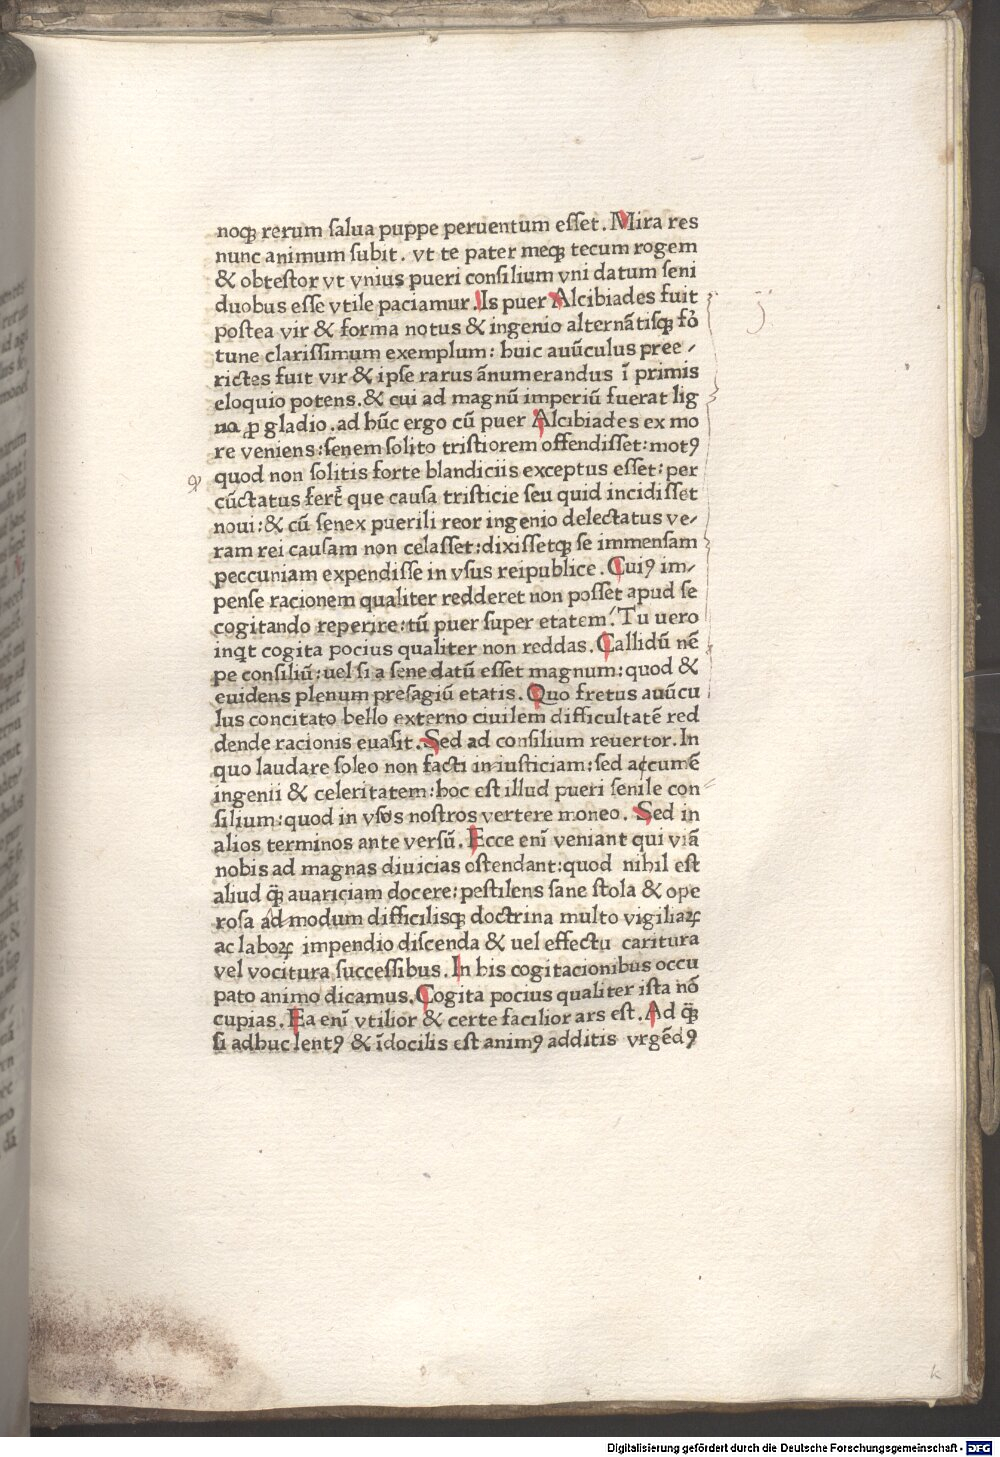 noqꝫ rerum ſalua puppe peruentum eſſet. Mira res
nunc animum ſubit. vt te pater meqꝫ tecum rogem
& obteſtor vt vnius pueri conſilium vni datum ſeni
duobus eſſe vtile paciamur. Is puer Alcibiades fuit
poſtea vir & forma notus & ingenio alternātiſqꝫ fo᷑
tune clariſſimum exemplum: huic auūculus pree ⸗
rictes fuit vir & ipſe rarus ānumerandus ī primis
eloquio potens. & cui ad magnū imperiū fuerat lig
na ꝓ gladio. ad hūc ergo cū puer Alcibiades ex mo
re veniens: ſenem ſolito triſtiorem offendiſſet: motꝰ
quod non ſolitis forte blandiciis exceptus eſſet: per
cūctatus fert᷑ que cauſa triſticie ſeu quid incidiſſet
noui: & cū ſenex puerili reor ingenio delectatus ve⸗
ram rei cauſam non celaſſet: dixiſſetqꝫ ſe immenſam
peccuniam expendiſſe in vſus reipublice. Cuiꝰ im⸗
penſe racionem qualiter redderet non poſſet apud ſe
cogitando reperire: tū puer ſuper etatem. Tu uero
inqt cogita pocius qualiter non reddas. Callidū nē
pe conſiliū: uel ſi a ſene datū eſſet magnum: quod &
euidens plenum preſagiū etatis. Quo fretus auūcu
lus concitato bello externo ciuilem difficultatē red
dende racionis euaſit. Sed ad conſilium reuertor. In
quo laudare ſoleo non facti in iuſticiam: ſed accumē
ingenii & celeritatem: hoc eſt illud pueri ſenile con
ſilium: quod in vſus noſtros vertere moneo. Sed in
alios terminos ante verſū. Ecce enī veniant qui viā
nobis ad magnas diuicias oſtendant: quod nihil eſt
aliud qꝫ̄ auariciam docere: peſtilens ſane ſtola & ope
roſa ad modum difficiliſqꝫ doctrina multo vigiliaꝝ
ac laboꝝ impendio diſcenda & uel effectu caritura
vel vocitura ſucceſſibus. In his cogitacionibus occu
pato animo dicamus. Cogita pocius qualiter iſta nō
cupias. Ea enī vtilior & certe facilior ars eſt. Ad qꝫ̄
ſi adhuc lentꝰ & īdocilis eſt animꝰ additis vrgēdꝰ
k
Digitalisierung gefördert durch die Deutsche Forschungsgemeinschaft - DFG